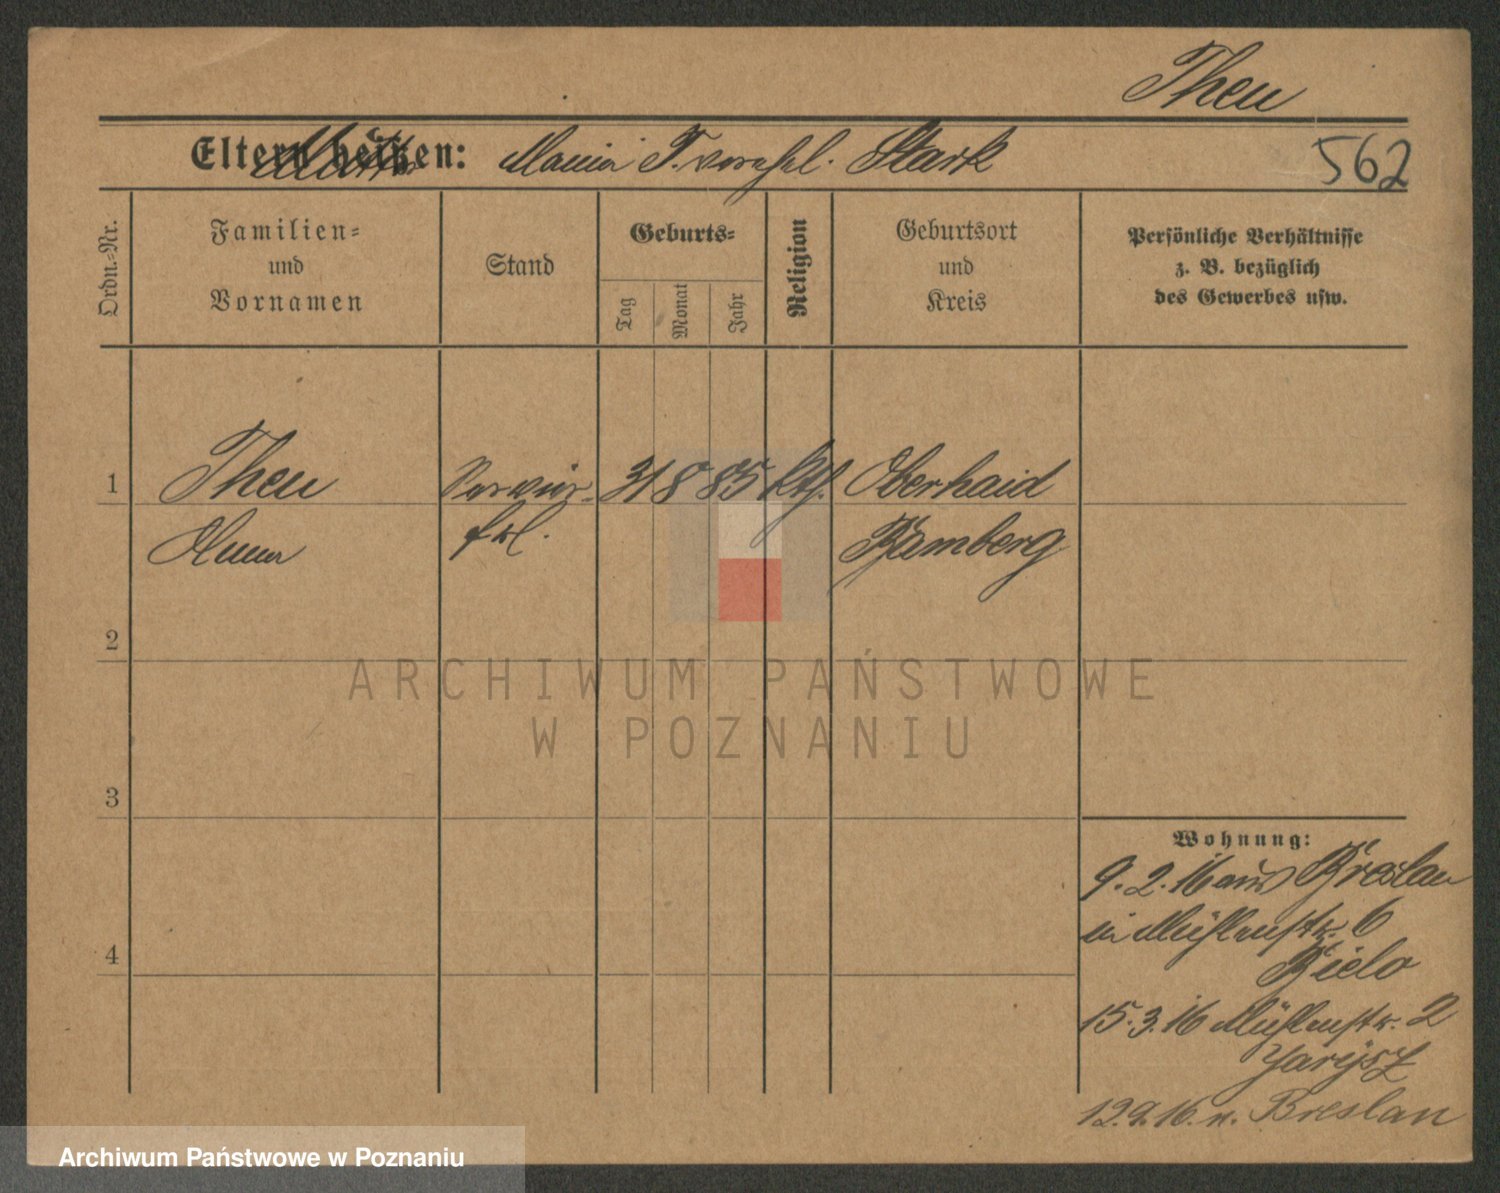 Theu
Eltern heißen: Maria T. verehel. Stark
562
Ordn.-Nr.
Familien-
und
Vornamen
Stand
Geburts-
Tag
Monat
Jahr
Religion
Geburtsort
und
Kreis
Persönliche Verhältnisse
z. B. bezüglich
des Gewerbes usw.
1 Theu Servier- 31 8 85 kth. Oberhaid
frl. Bamberg
2
3
4
Wohnung:
9.2.16 aus Breslau
in Mühlenstr. 6
Bielo
15.3.16 Mühlenstr. 2
12.9.16. n. Breslau
ARCHIWUM PAŃSTWOWE
W POZNANIU
Archiwum Państwowe w Poznaniu